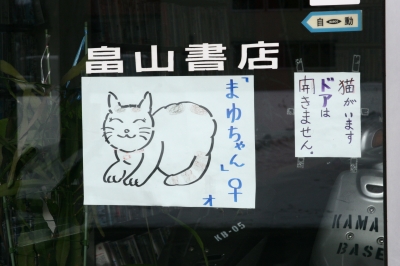 自動
畠山書店
「まゆちゃん」♀
オ
猫がいます
ドアは
開きません。
KB-05
KAMA
BASE